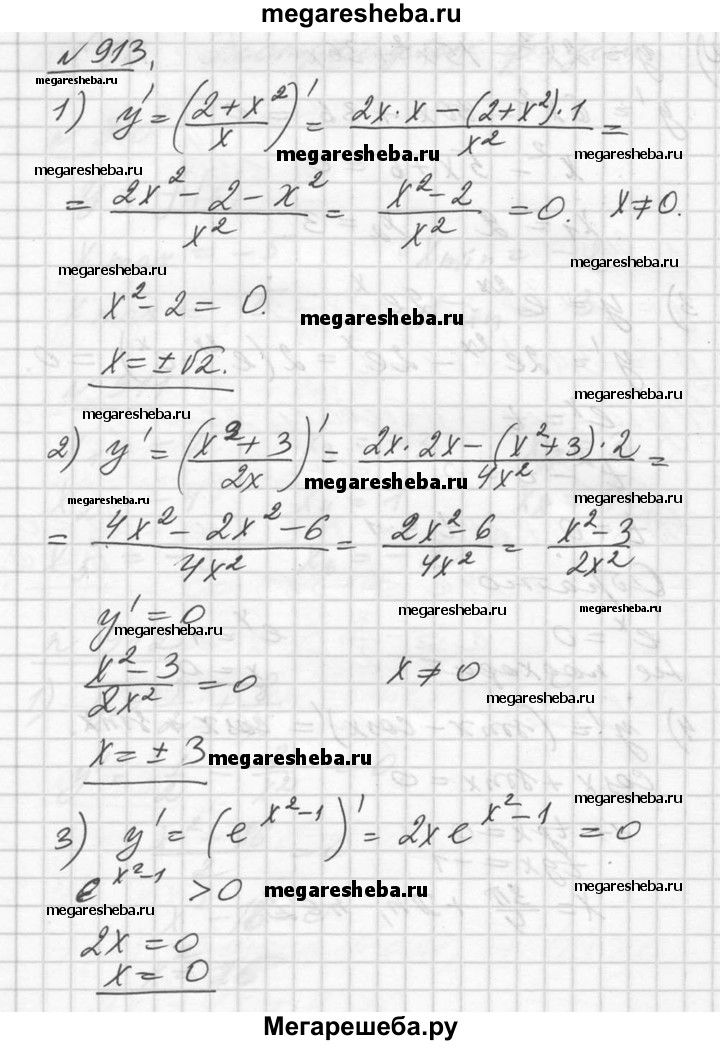 megaresheba.ru
№ 913.
megaresheba.ru
1) y' = ((2+x²)/x)' = (2x·x − (2+x²)·1)/x² =
megaresheba.ru
megaresheba.ru
= (2x² − 2 − x²)/x² = (x² − 2)/x² = 0. x ≠ 0.
megaresheba.ru
megaresheba.ru
x² − 2 = 0.
megaresheba.ru
x = ± √2.
megaresheba.ru
megaresheba.ru
2) y' = ((x² + 3)/2x)' = (2x·2x − (x² + 3)·2)/4x² =
megaresheba.ru
megaresheba.ru
megaresheba.ru
= (4x² − 2x² − 6)/4x² = (2x² − 6)/4x² = (x² − 3)/2x²
y' = 0
megaresheba.ru
megaresheba.ru
megaresheba.ru
(x² − 3)/2x² = 0 x ≠ 0
megaresheba.ru
x = ± 3
megaresheba.ru
megaresheba.ru
3) y' = (e^(x²−1))' = 2x e^(x²−1) = 0
e^(x²−1) > 0
megaresheba.ru
megaresheba.ru
megaresheba.ru
2x = 0
x = 0
Мегарешеба.ру